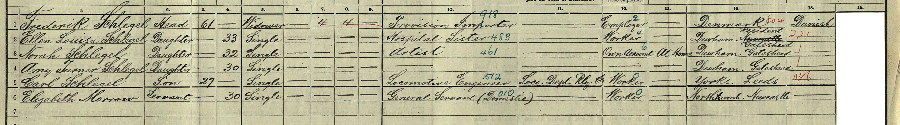 Frederick Schlegel Head 61 Widower 4 4 Provision Importer Employer Denmark Danish
Ellen Louisa Schlegel Daughter 33 Single Hospital Sister Worker Durham
Norah Schlegel Daughter 32 Single Artist 461 Own account At Home Durham Gateshead
Schlegel Daughter 30 Single Durham Gateshead
Carl Schlegel Son 27 Single Locomotive Engineer Loco. Dept. Worker Yorks Leeds
Elizabeth Servant 30 Single General Servant (Domestic) Worker Northumb. Newcastle